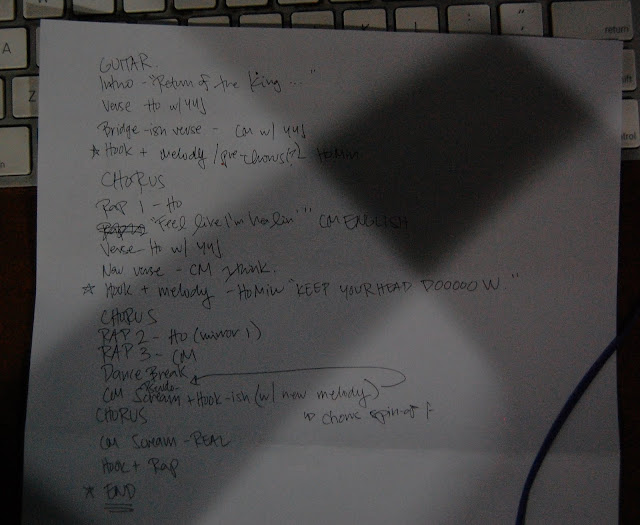 GUITAR.
Intro - "Return of the King ..."
Verse Ho w/ YYJ
Bridge-ish verse - CM w/ YYJ
☆ Hook + melody / pre-chorus(?) HoMin
CHORUS
Rap 1 - Ho
"Feel like I'm CM ENGLISH
Verse Ho w/ YYJ
New verse - CM I think.
☆ Hook + melody - HoMin "KEEP YOUR HEAD DOOOOO W."
CHORUS
RAP 2 - Ho (mirror 1)
RAP 3 - CM
Dance Break
CM Scream + Hook-ish (w/ new melody)
CHORUS
CM Scream - REAL
Hook + Rap
☆ END
A
Z
return